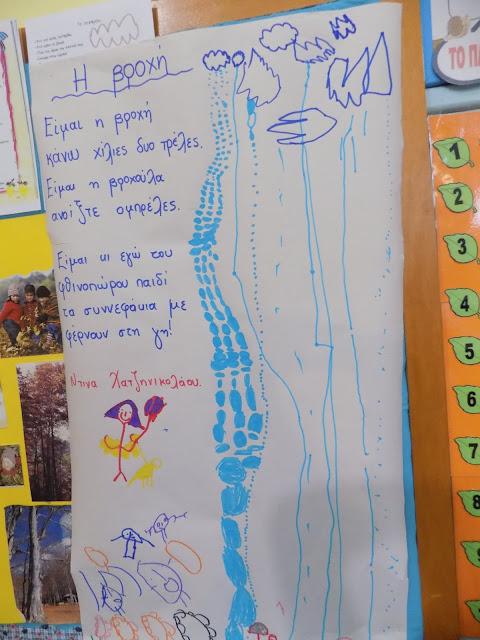 Η βροχή
Είμαι η βροχή
κάνω χίλιες δυο τρέλες.
Είμαι η βροχούλα
ανοίξτε ομπρέλες.
Είμαι κι εγώ του
φθινοπώρου παιδί
τα συννεφάκια με
φέρνουν στη γη!
Ντίνα Χατζηνικολάου.
ΤΟ ΠΑ
1
2
3
4
5
6
7
8
9